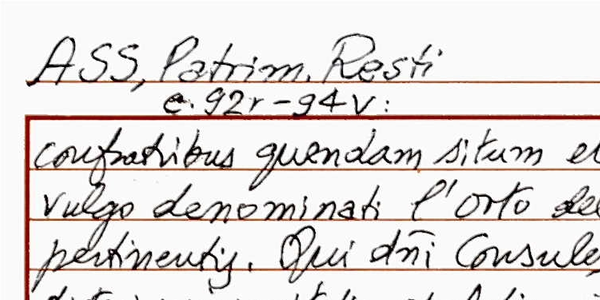 ASS, Patrim. Resti
c. 92r-94v:
confratribus quendam situm et
vulgo denominati l'orto del
pertinentijs. Qui dñi Consules